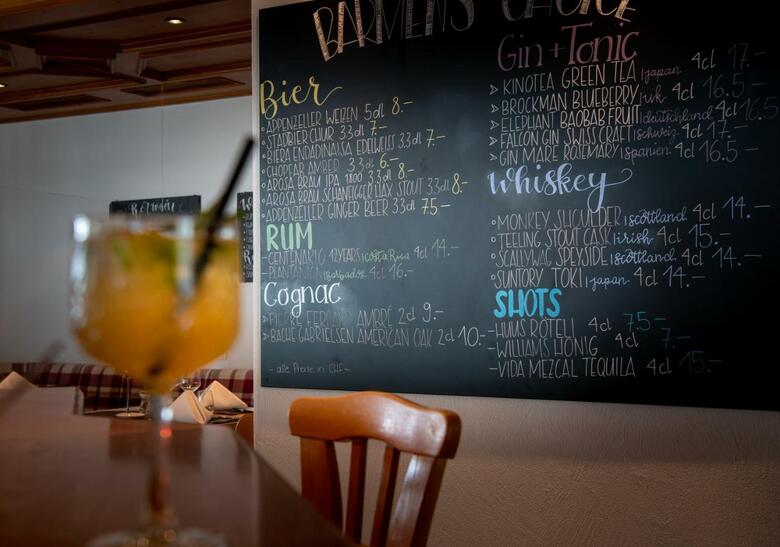 BARMENS CHOICE
Bier
APPENZELLER WEIZEN 5dl 8.-
STADTBIER CHUR 33dl 7.-
BIERA ENGIADINAISA EDELWEISS 33dl 7.-
CHOPFAB AMBER 33dl 6.-
AROSA BRÄU IPA 1800 33dl 8.-
AROSA BRÄU SCHANFIGGER HAY STOUT 33dl 8.-
APPENZELLER GINGER BEER 33dl 7.5-
RUM
CENTENARIO 12YEARS | costa Rica 4cl 14.-
4cl 16.-
Cognac
PIERRE FERRAND AMBRÉ 2cl 9.-
BACHE GABRIELSEN AMERICAN OAK 2cl 10.-
- alle Preise in CHF -
Gin + Tonic
KINOTEA GREEN TEA | japan 4cl 17.-
BROCKMAN BLUEBERRY | uk 4cl 16.5
ELEPHANT BAOBAB FRUIT | deutschland 4cl 17.-
FALCON GIN SWISS CRAFT | schweiz 4cl 17.-
GIN MARE ROSEMARY | spanien 4cl 16.5
Whiskey
MONKEY SHOULDER | scottland 4cl 14.-
TEELING STOUT CASK | irish 4cl 15.-
SCALLYWAG SPEYSIDE | scottland 4cl 14.-
SUNTORY TOKI | japan 4cl 14.-
SHOTS
HUUS RÖTELI 4cl 7.5-
WILLIAMS HONIG 4cl
VIDA MEZCAL TEQUILA 4cl 15.-